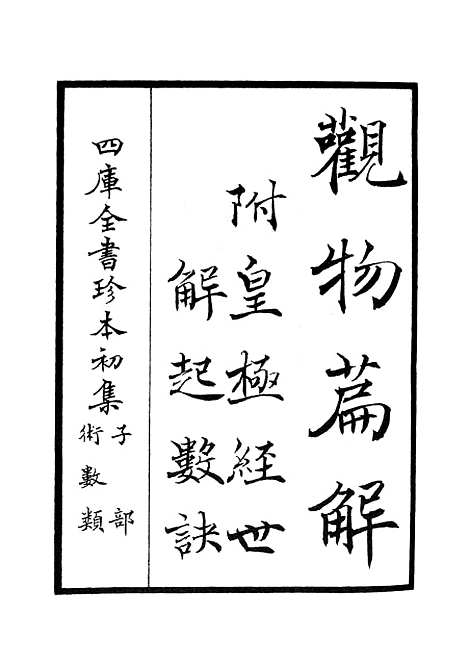 觀物篇解
附皇極經世
解起數訣
四庫全書珍本初集
子部
術數類